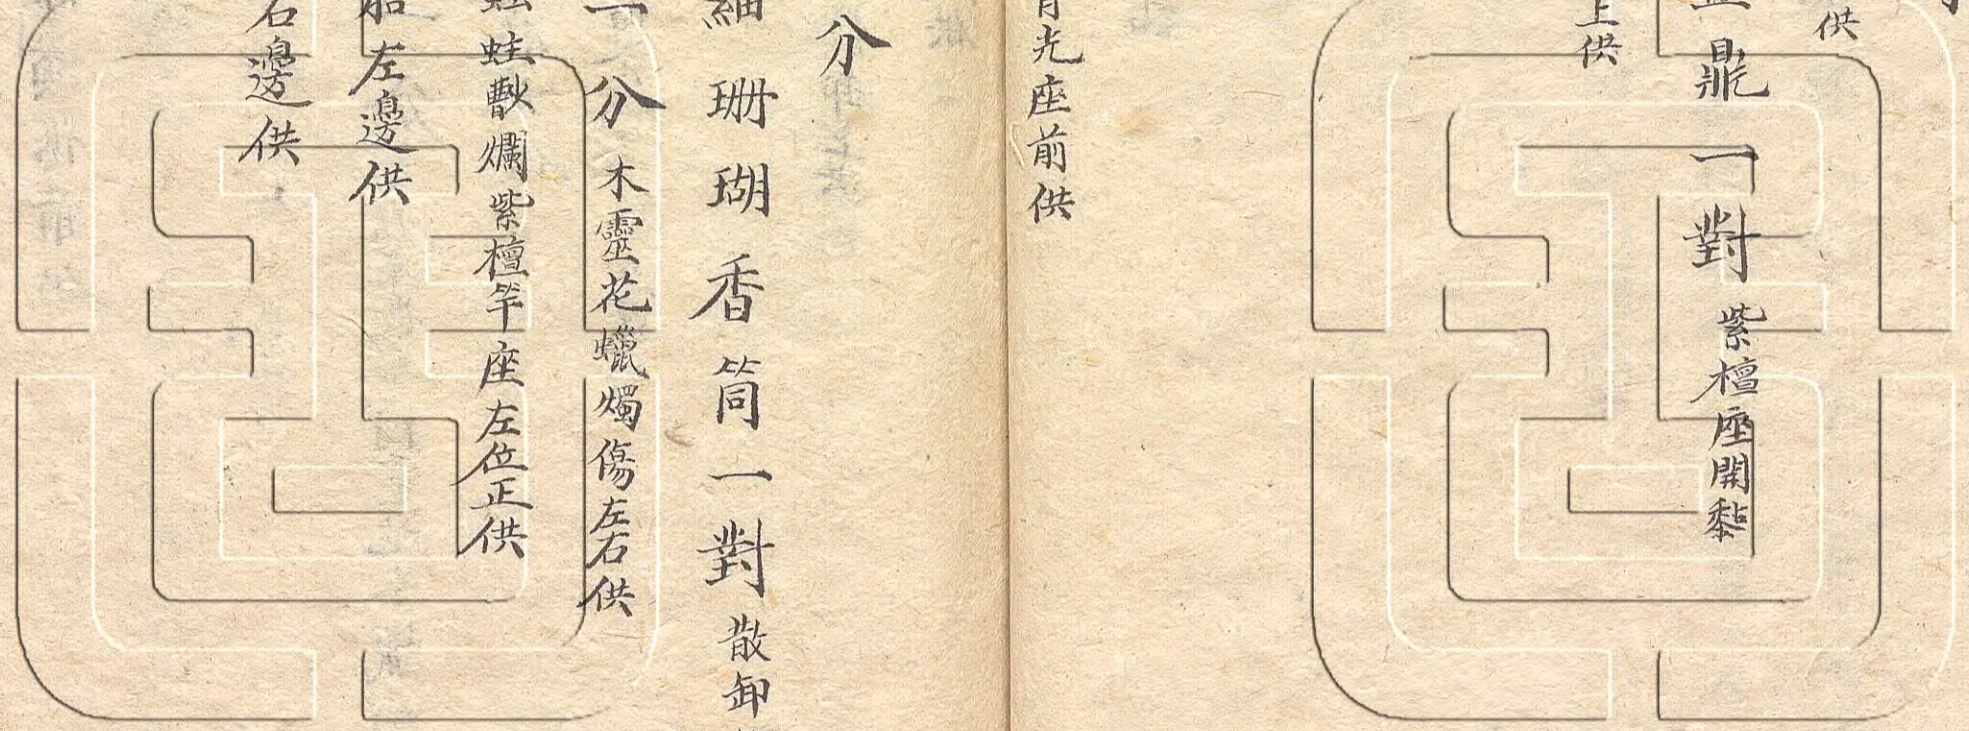 供
鼎一對紫檀座開黏
上供
光座前供
分
珊瑚香筒一對散卸
一分木靈花蠟燭傷左右供
蛀斁爛紫檀竿座左位正供
船左邊供
右邊供